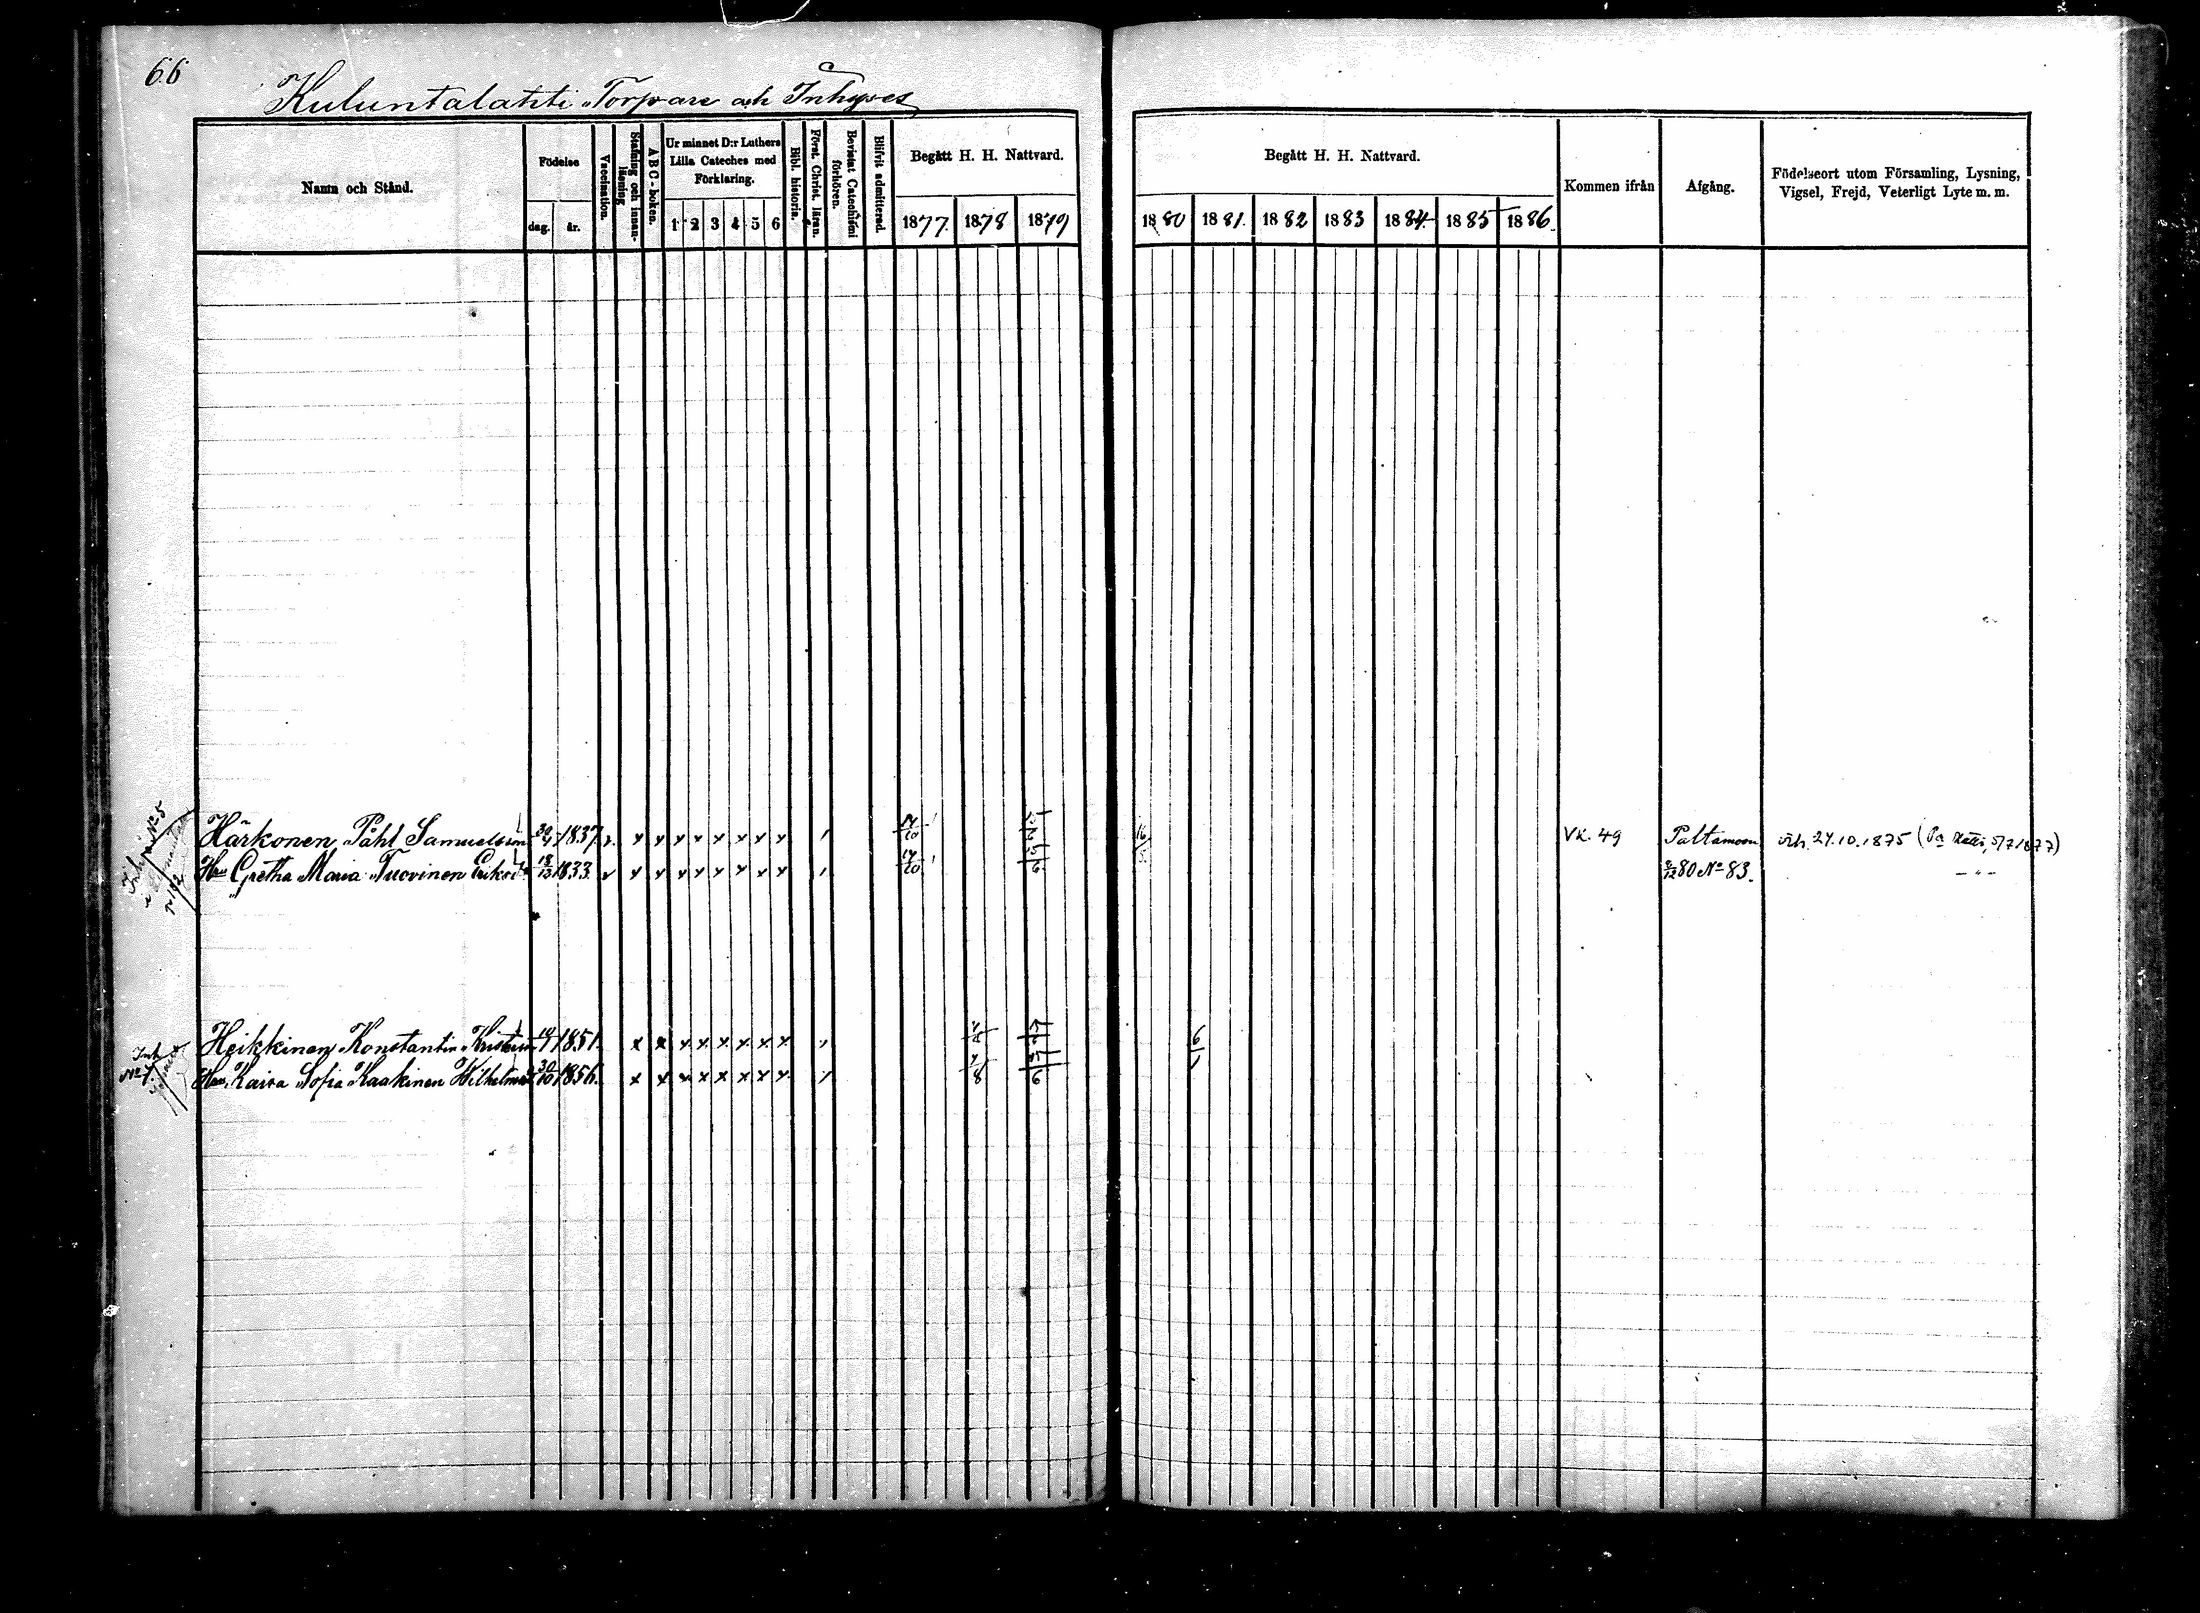 66
Kuluntalahti Torpare och Inhyses
Namn och Stånd.
Födelse
dag.
år.
Vaccination.
Stafning och innanläsning
ABC-boken.
Ur minnet D:r Luthers
Lilla Cateches med
Förklaring.
1 2 3 4 5 6
Bibl. historia.
Först. Christ. läran.
Bevistat Catechismi förhören.
Blifvit admitterad.
Begått H. H. Nattvard.
1877. 1878 1879
Begått H. H. Nattvard.
1880 1881. 1882 1883 1884 1885 1886.
Kommen ifrån
Afgång.
Födelseort utom Församling, Lysning,
Vigsel, Frejd, Veterligt Lyte m. m.
Härkonen Påhl Samuelsson 1837 x x x x x x x x x / VK. 49 Paltamoon vih. 24.10.1875
Hu Gretha Maria Tuovinen Eriksd. 18/12 1833 x x x x x x x x x / 80 No 83. – " –
Heikkinen Konstantin 1851 x x x x x x x x / 6/1
Hu. Kaisa Sofia Kaakinen Wilhelmsd. 30/10 1856 x x x x x x x x /